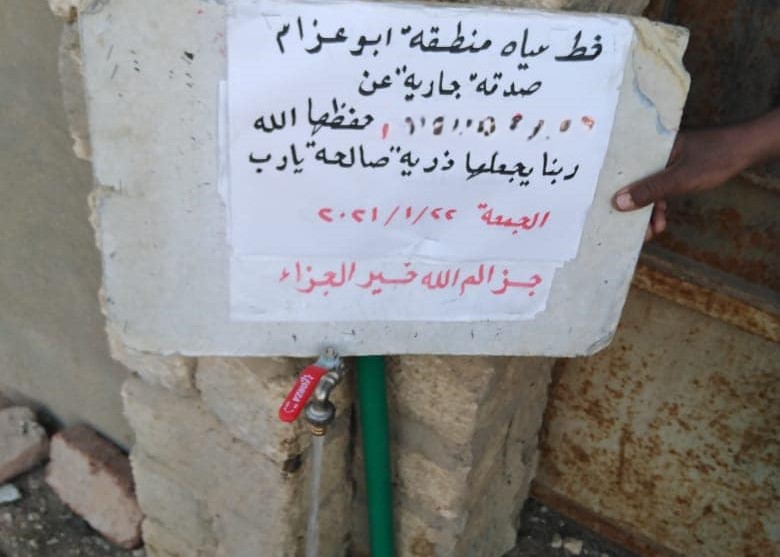 خط مياه منطقة ابو عزام
صدقة جارية عن
حفظها الله
ربنا يجعلها ذرية صالحة يارب
الجمعة ٢٠٢١/١/٢٢
جزاكم الله خير الجزاء